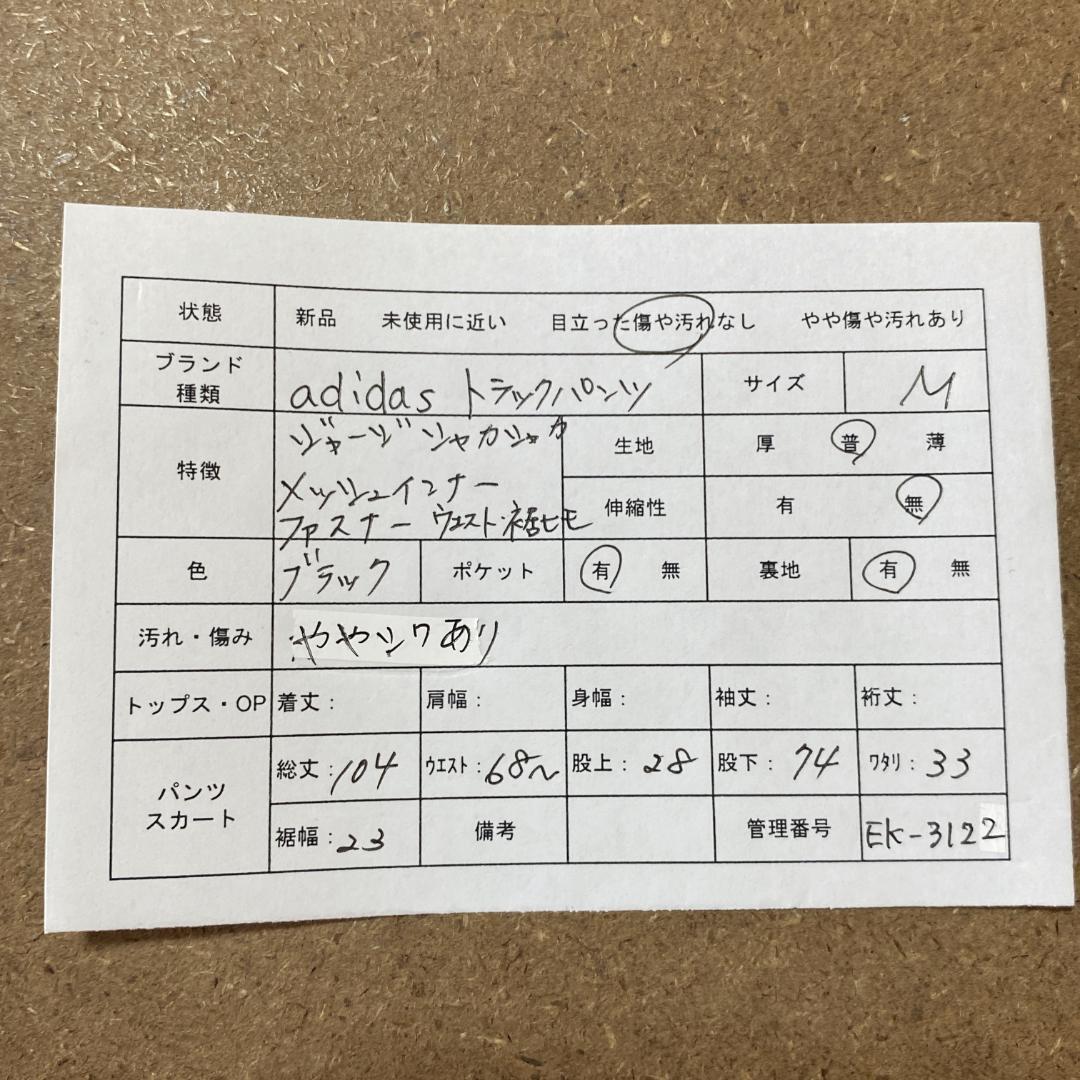 状態 新品 未使用に近い 目立った傷や汚れなし やや傷や汚れあり
ブランド
種類
adidas トラックパンツ サイズ M
特徴
ジャージ シャカシャカ
メッシュインナー
ファスナー ウエスト・裾ヒモ
生地 厚 普 薄
伸縮性 有 無
色 ブラック ポケット 有 無 裏地 有 無
汚れ・傷み ややシワあり
トップス・OP 着丈: 肩幅: 身幅: 袖丈: 裄丈:
パンツ
スカート
総丈:104 ウエスト:68~ 股上:28 股下:74 ワタリ:33
裾幅:23 備考 管理番号 EK-3122